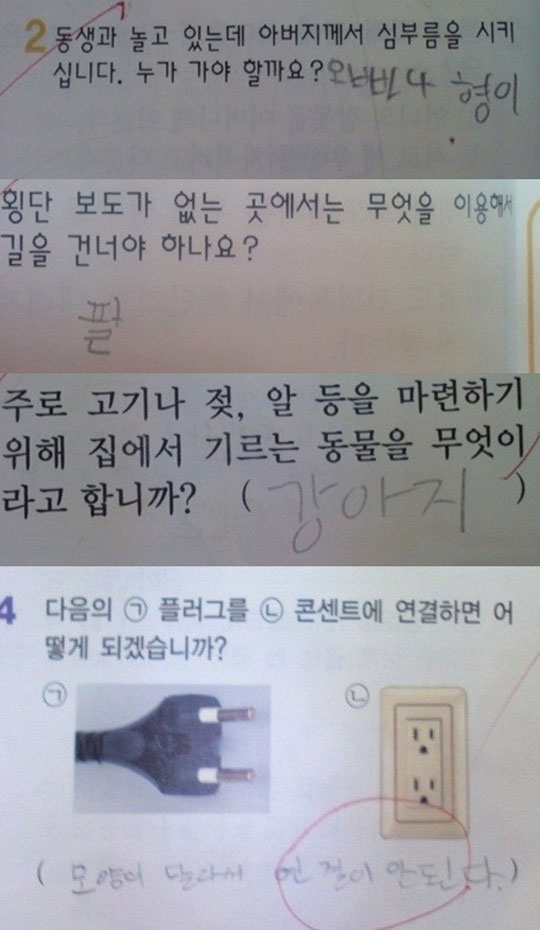 2 동생과 놀고 있는데 아버지께서 심부름을 시키
십니다. 누가 가야 할까요? 오빠나 형이
횡단 보도가 없는 곳에서는 무엇을 이용해서
길을 건너야 하나요?
팔
주로 고기나 젖, 알 등을 마련하기
위해 집에서 기르는 동물을 무엇이
라고 합니까? ( 강아지 )
4 다음의 ㉠ 플러그를 ㉡ 콘센트에 연결하면 어
떻게 되겠습니까?
㉠ ㉡
( 모양이 달라서 연결이 안된다. )